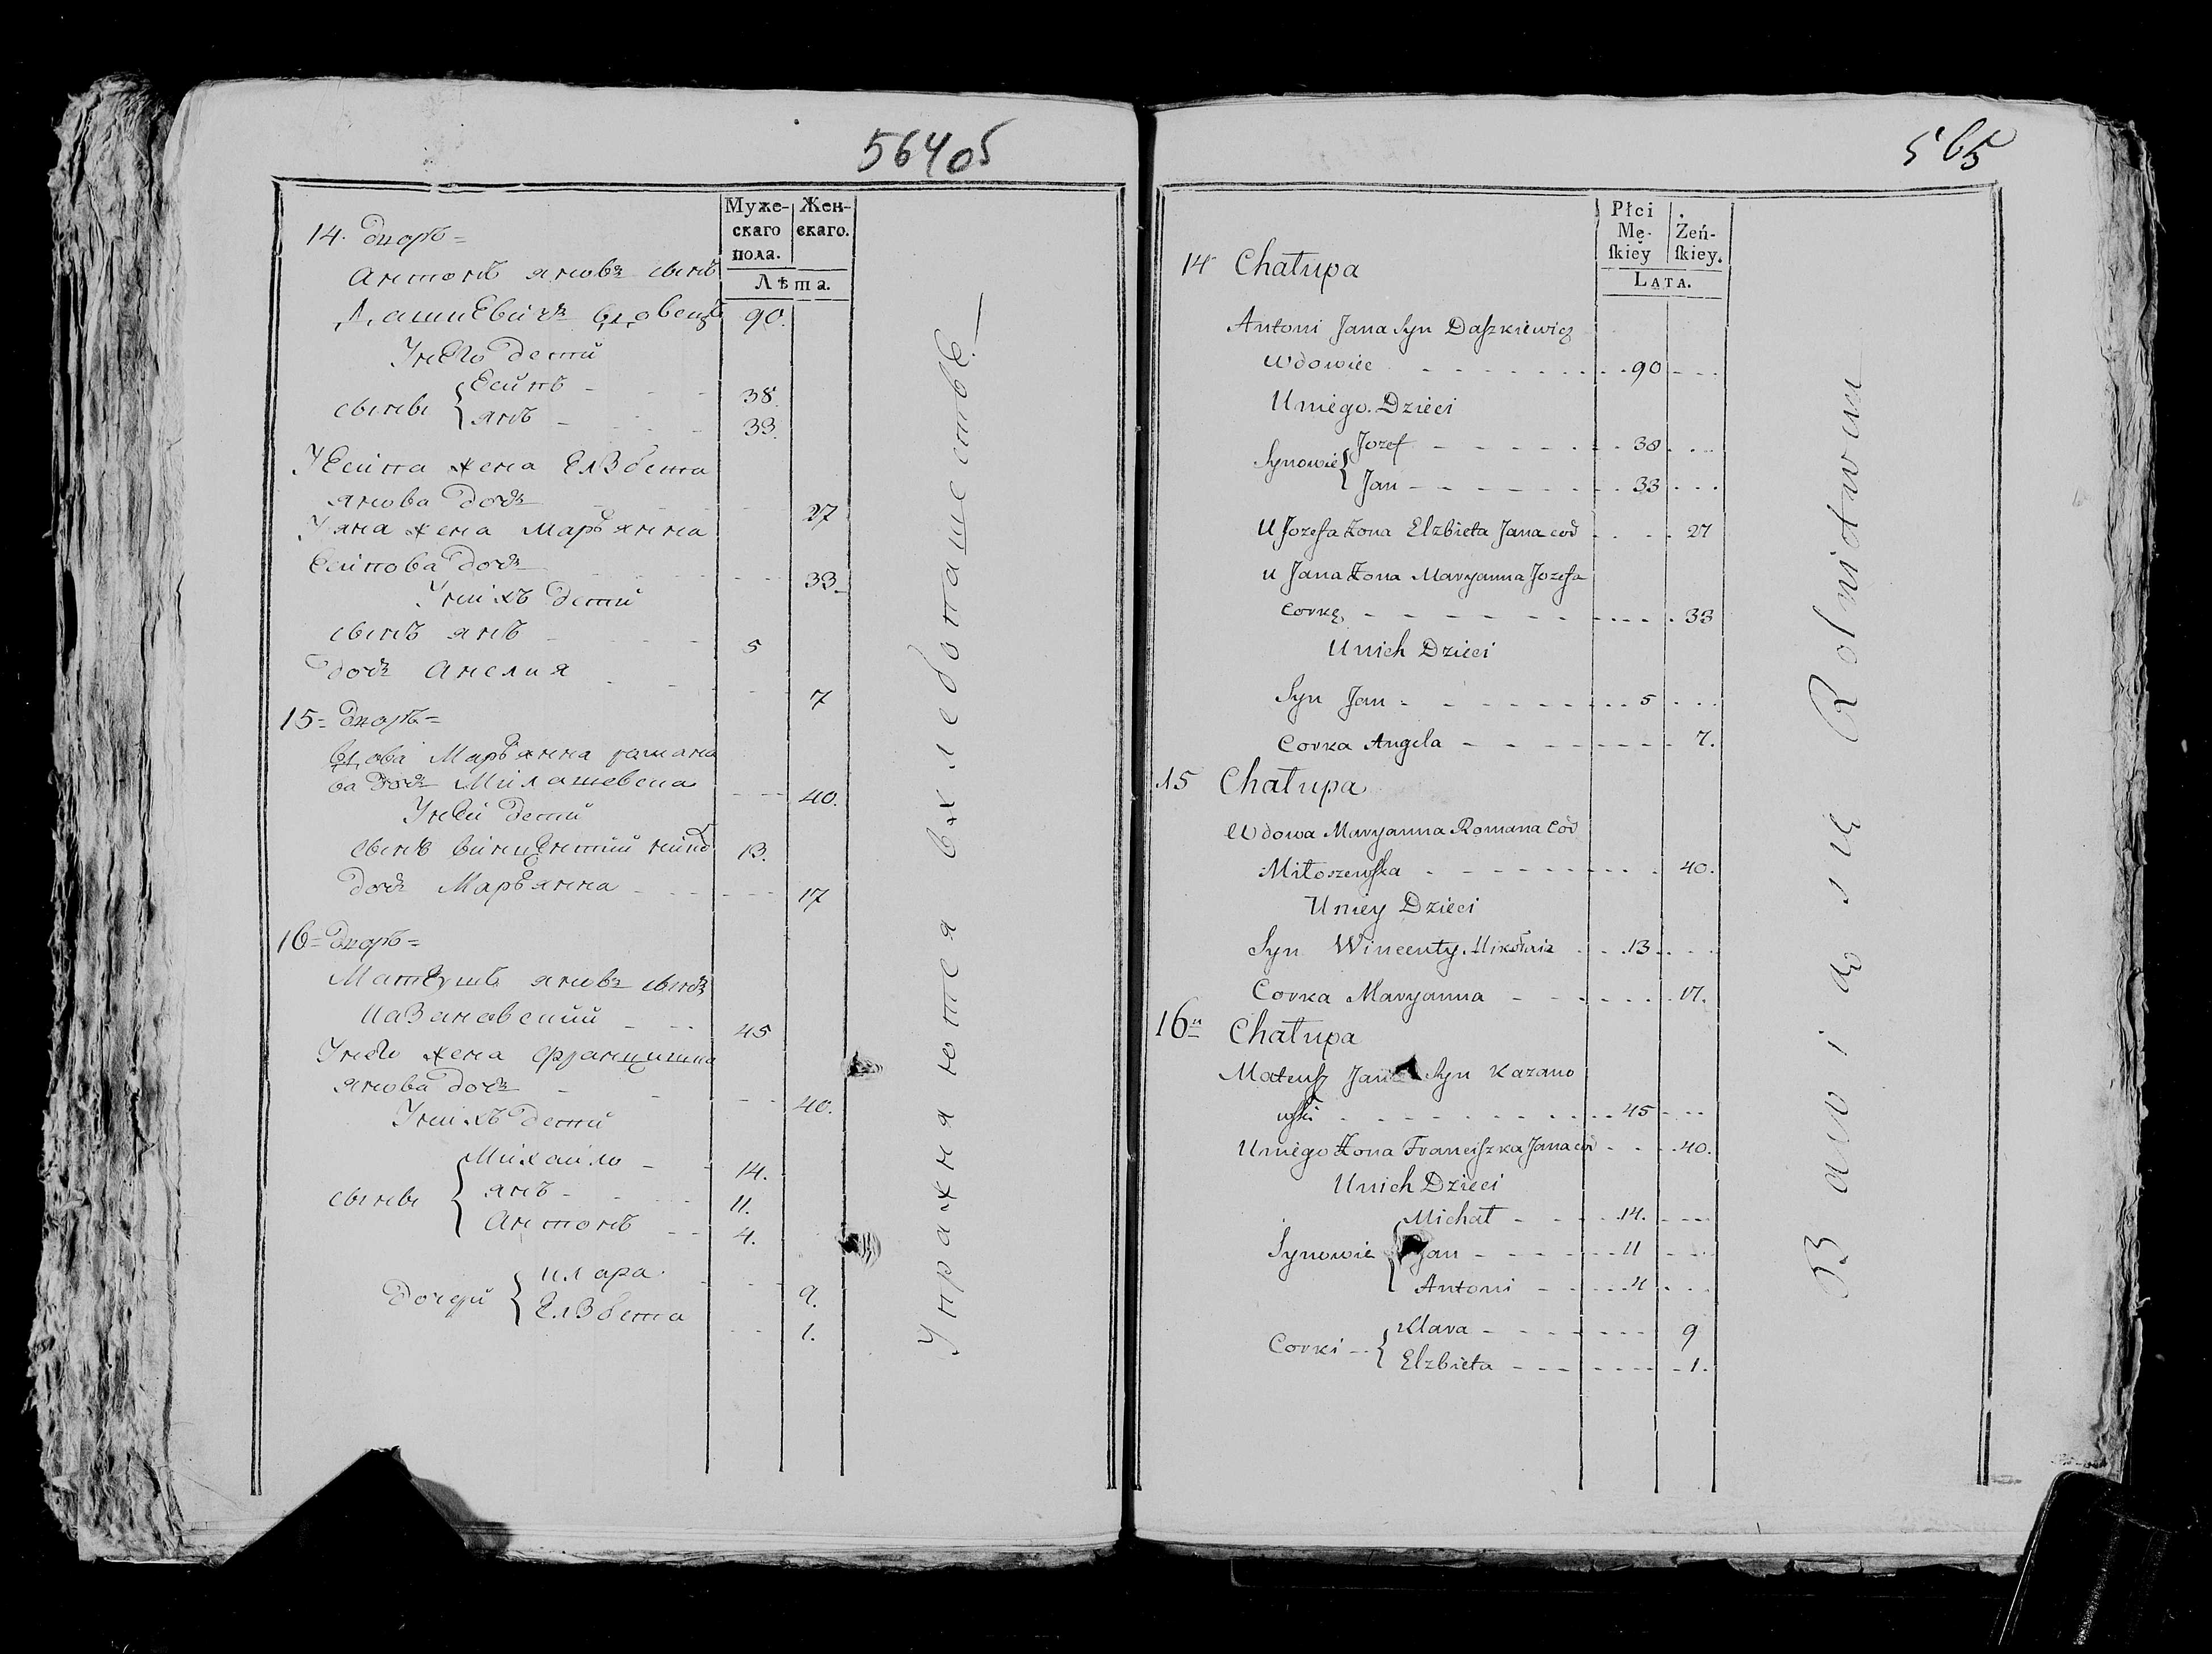 564об
Муже-
скаго
пола.
Жен-
скаго.
Лѣта.
14. Дворъ =
Антонъ яновъ сынъ
Дашкевичъ вдовецъ 90.
У него дети
сынове { Есипъ - - 38.
янъ - - - 33.
У Есипа жена Елзбета
янова дочь - - - 27
У яна жена Марьянна
Есипова дочь - - - 33
У нихъ дети
сынъ янъ - - - 5
дочь Анеля - - - 7
15 = Дворъ =
вдова Марьянна рамано
ва дочь Милашевска - - 40.
У неи дети
сынъ винцентий 13.
дочь Марьянна - - - 17
16 = Дворъ =
Матеушъ яновъ сынъ
Казановский - - - 45
У него жена францишка
янова дочь - - - 40.
У нихъ дети
сынове { Михайло - - 14.
янъ - - - 11.
Антонъ - - 4.
дочери { клара - - - 9.
Елзбета - - 1.
Упражняются въ хлебопашестве.
565
Płci
Mę-
skiey
Żeń-
skiey.
LATA.
14 Chałupa
Antoni Jana Syn Daszkiewicz
Wdowiec - - - 90 - - -
U niego Dzieci
Synowie { Jozef - - - 38 - - -
Jan - - - 33 - - -
U Jozefa Żona Elzbieta Jana cor - - - 27
u Jana Żona Maryanna Jozefa
Corka - - - 33
U nich Dzieci
Syn Jan - - - 5 - - -
Corka Angela - - - 7.
15 Chałupa
Wdowa Maryanna Romana Cor
Miłoszewska - - - 40.
U niey Dzieci
Syn Wincenty Mikołaia - - 13 - - -
Corka Maryanna - - - 17.
16 Chałupa
Mateusz Jana Syn Kazano
wski - - - 45 - - -
U niego Żona Franciszka Jana cor - - - 40.
U nich Dzieci
Synowie { Michał - - - 14. - - -
Jan - - - 11 - - -
Antoni - - - 4 - - -
Corki - - { Klara - - - 9
Elzbieta - - - 1.
Bawią się Rolnictwem